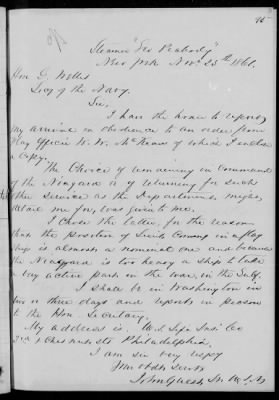 95
Steamer "Geo Peabody"
New York Nov. 25th 1861.
Hon G. Welles
Secy of the Navy.
Sir,
I have the honor to report
my arrival in obedience to an order from
Flag Officer W. W. McKean of which I enclose
a Copy.
The Choice of remaining in Command
of the Niagara or of returning for such
other Service as the Department might
detail me for, was given to me.
I chose the latter, for the reason
that the position of Lieut. Comng in a flag
ship is almost a nominal one and because
the Niagara is too heavy a ship to take
a very active part in the war, in the Gulf.
I shall be in Washington in
two or three days and report in person
to the Hon. Secretary.
My address is. Co
& Chestnut St Philadelphia.
I am sir very respy
Your obdt Servt
John Guest Lt. U.S.N